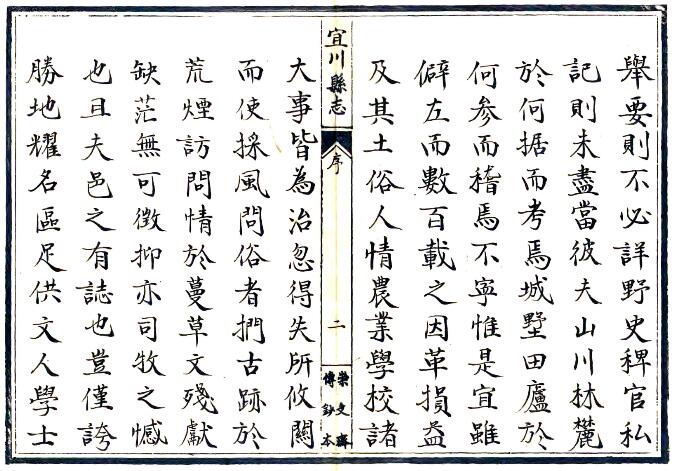 舉要則不必詳野史稗官私
記則未盡當彼夫山川林麓
於何据而考焉城墅田廬於
何参而稽焉不寧惟是宜雖
僻左而數百載之因革損益
及其土俗人情農業學校諸
宜川縣志
序
二
崇文齋
傳鈔本
大事皆為治忽得失所攸關
而使採風問俗者捫古跡於
荒煙訪問情於蔓草文殘獻
缺茫無可徴抑亦司牧之憾
也且夫邑之有誌也豈僅誇
勝地耀名區足供文人學士